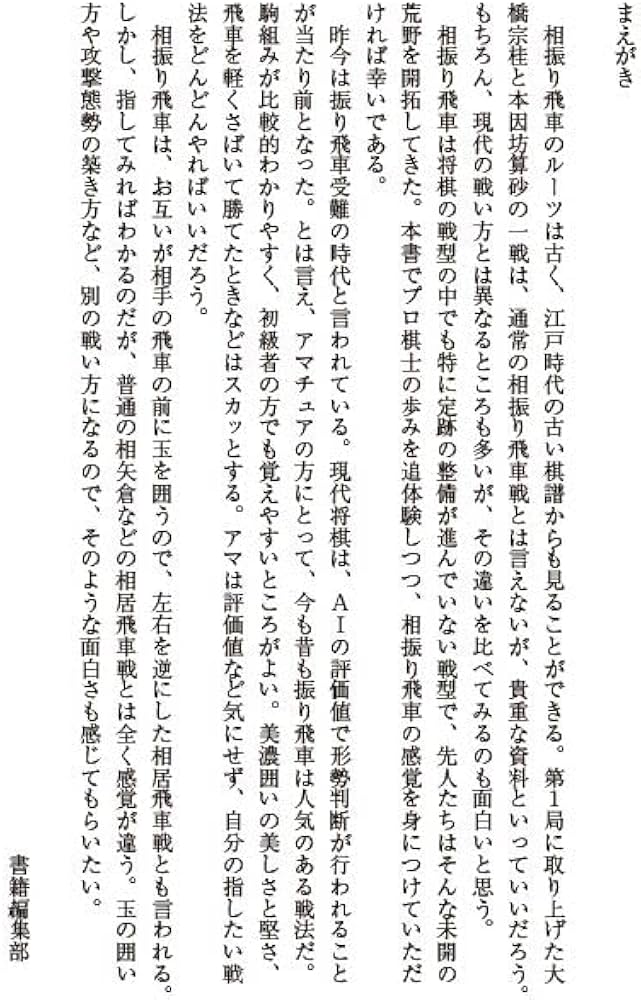 まえがき
相振り飛車のルーツは古く、江戸時代の古い棋譜からも見ることができる。第１局に取り上げた大
橋宗桂と本因坊算砂の一戦は、通常の相振り飛車戦とは言えないが、貴重な資料といっていいだろう。
もちろん、現代の戦い方とは異なるところも多いが、その違いを比べてみるのも面白いと思う。
相振り飛車は将棋の戦型の中でも特に定跡の整備が進んでいない戦型で、先人たちはそんな未開の
荒野を開拓してきた。本書でプロ棋士の歩みを追体験しつつ、相振り飛車の感覚を身につけていただ
ければ幸いである。
昨今は振り飛車受難の時代と言われている。現代将棋は、ＡＩの評価値で形勢判断が行われること
が当たり前となった。とは言え、アマチュアの方にとって、今も昔も振り飛車は人気のある戦法だ。
駒組みが比較的わかりやすく、初級者の方でも覚えやすいところがよい。美濃囲いの美しさと堅さ、
飛車を軽くさばいて勝てたときなどはスカッとする。アマは評価値など気にせず、自分の指したい戦
法をどんどんやればいいだろう。
相振り飛車は、お互いが相手の飛車の前に玉を囲うので、左右を逆にした相居飛車戦とも言われる。
しかし、指してみればわかるのだが、普通の相矢倉などの相居飛車戦とは全く感覚が違う。玉の囲い
方や攻撃態勢の築き方など、別の戦い方になるので、そのような面白さも感じてもらいたい。
書籍編集部